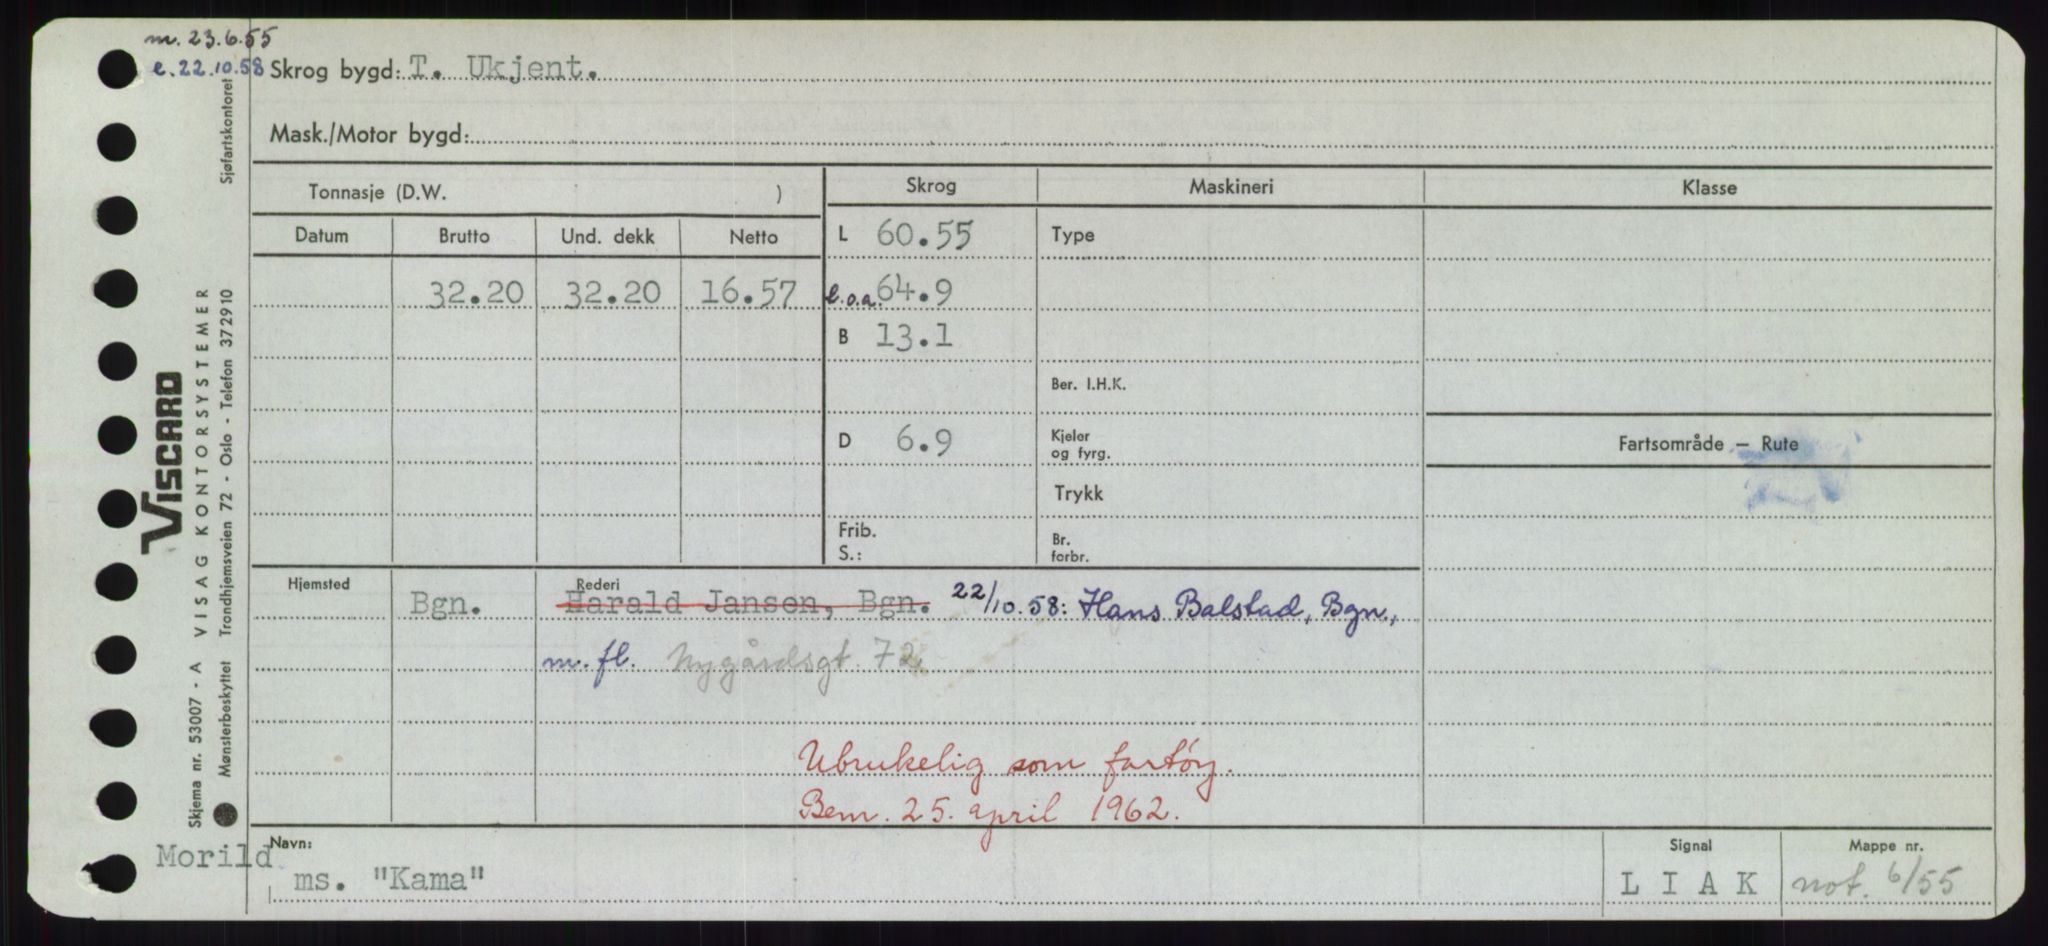 m. 23.6.55
e. 22.10.58
Skrog bygd: T. Ukjent.
Mask./Motor bygd:
Tonnasje (D.W. )
Skrog
Maskineri
Klasse
Datum
Brutto
Und. dekk
Netto
L 60.55
Type
32.20
32.20
16.57
l.o.a. 64.9
B 13.1
Ber. I.H.K.
D 6.9
Kjeler
og fyrg.
Fartsområde — Rute
Trykk
Frib.
S.:
Br.
forbr.
Hjemsted
Rederi
Bgn.
Harald Jansen, Bgn. 22/10.58: Hans Balstad, Bgn.,
m. fl. Nygårdsgt. 72
Ubrukelig som fartöy.
Bem. 25. april 1962.
Navn:
Morild
ms. "Kama"
Signal
L I A K
Mappe nr.
not. 6/55
Viscard
Skjema nr. 53007 - A VISAG KONTORSYSTEMER
Mønsterbeskyttet Trondhjemsveien 72 - Oslo - Telefon 372910 Sjøfartskontoret